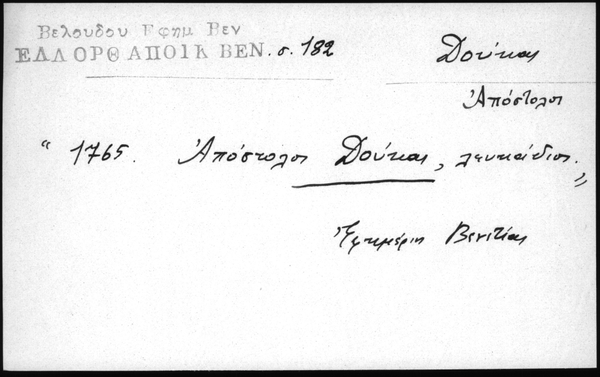 Βελουδου Εφημ Βεν
ΕΛΛΟΡΘ ΑΠΟΙΚ ΒΕΝ. σ. 182
Δούκας
Ἀπόστολος
" 1765. Ἀπόστολος Δούκας, λευκάδιος. "
Ἐφημέριος Βενετίας